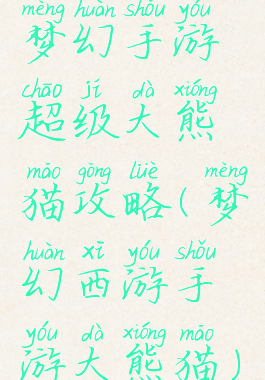 mèng huàn shǒu yóu
梦幻手游
chāo jí dà xióng
超级大熊
māo gōng lüè ( mèng
猫攻略(梦
huàn xī yóu shǒu
幻西游手
yóu dà xióng māo )
游大熊猫)